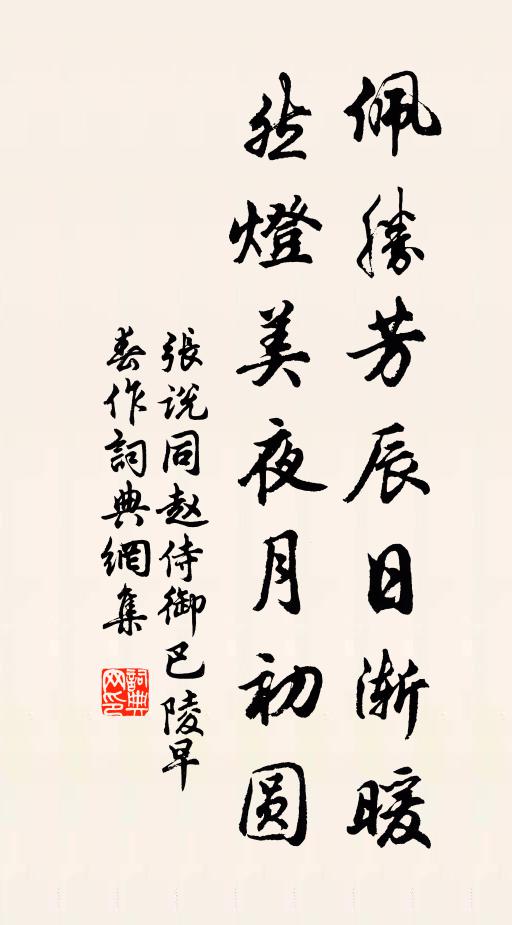 佩勝芳辰日渐暖
然燈美夜月初圆
張说同赵侍御巴陵早
春作詞典網集
詞典网印